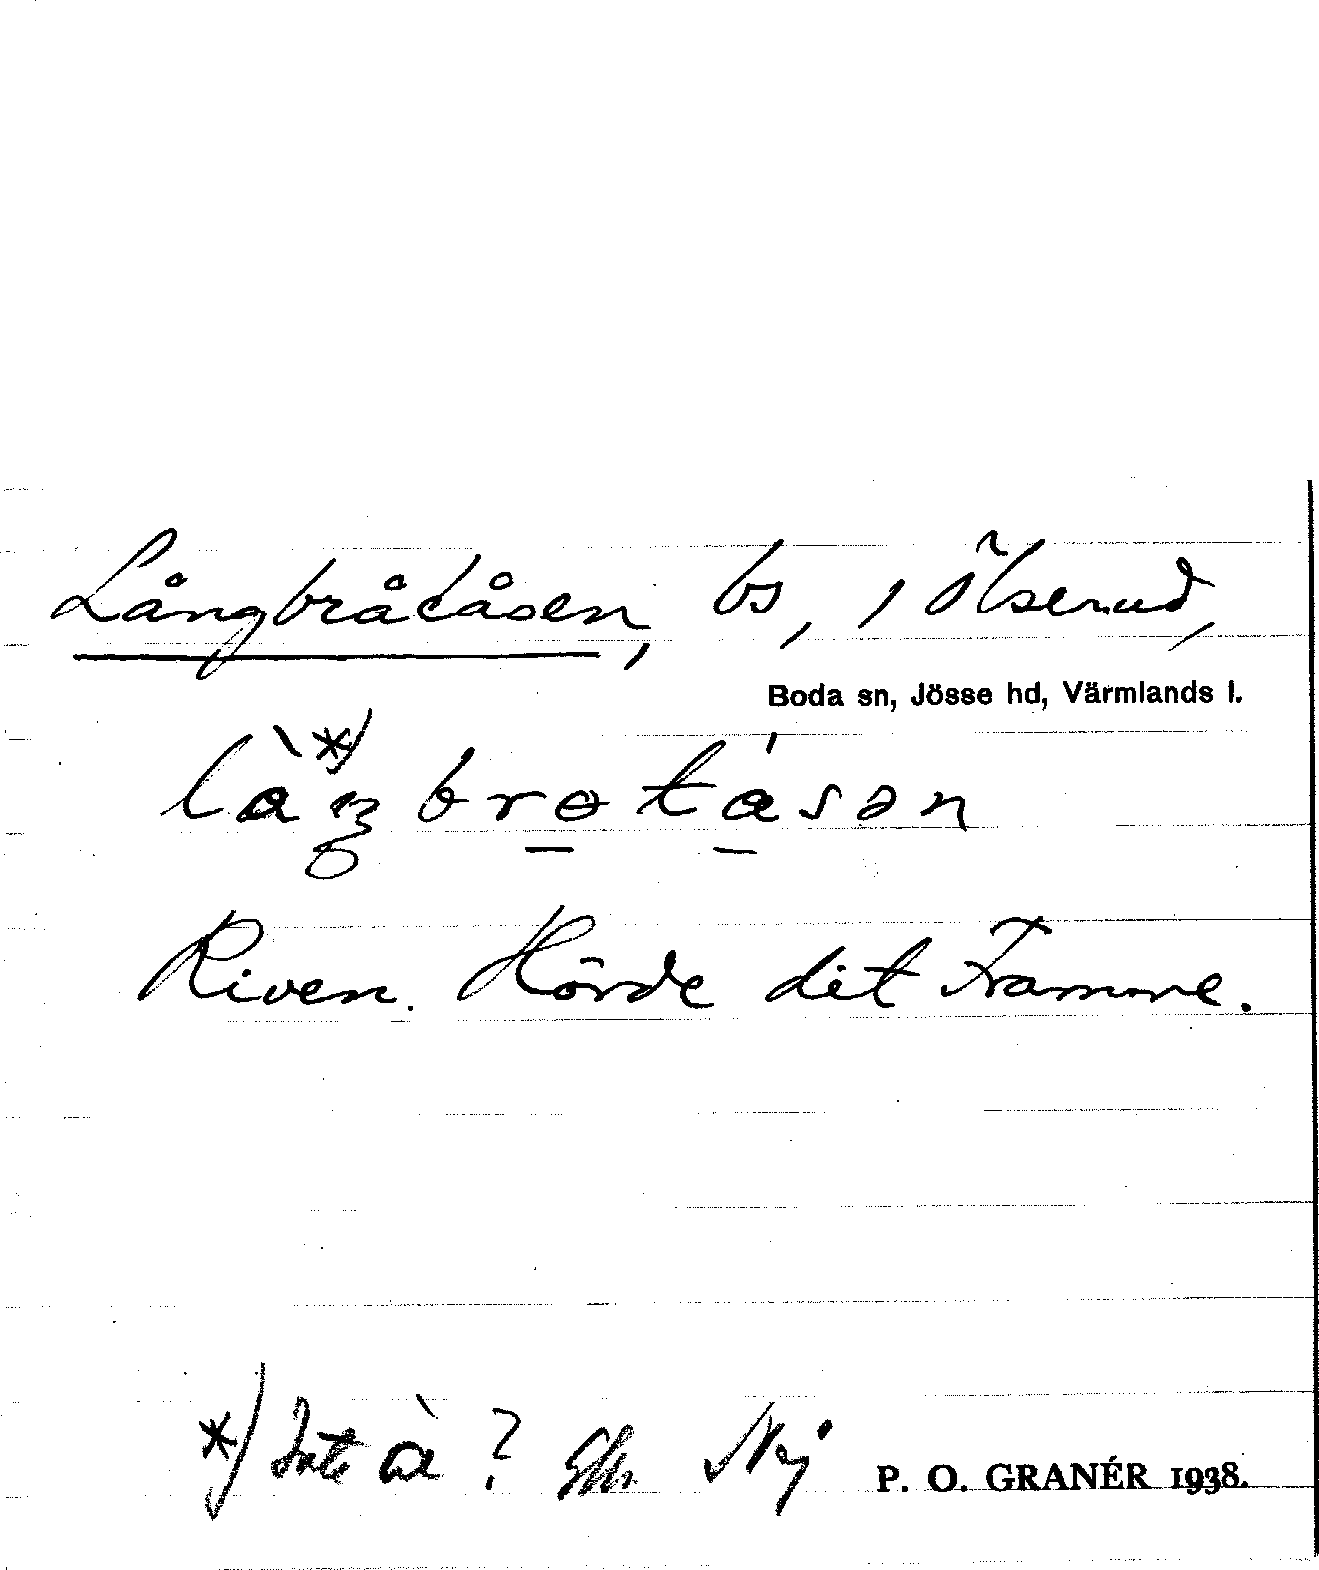 Långbråtåsen, bs, i Ölserud,
Boda sn, Jösse hd, Värmlands l.
làŋ*) brotásən
Riven. Hörde dit Framme.
*) Inte à? Nej
P. O. GRANÉR 1938.